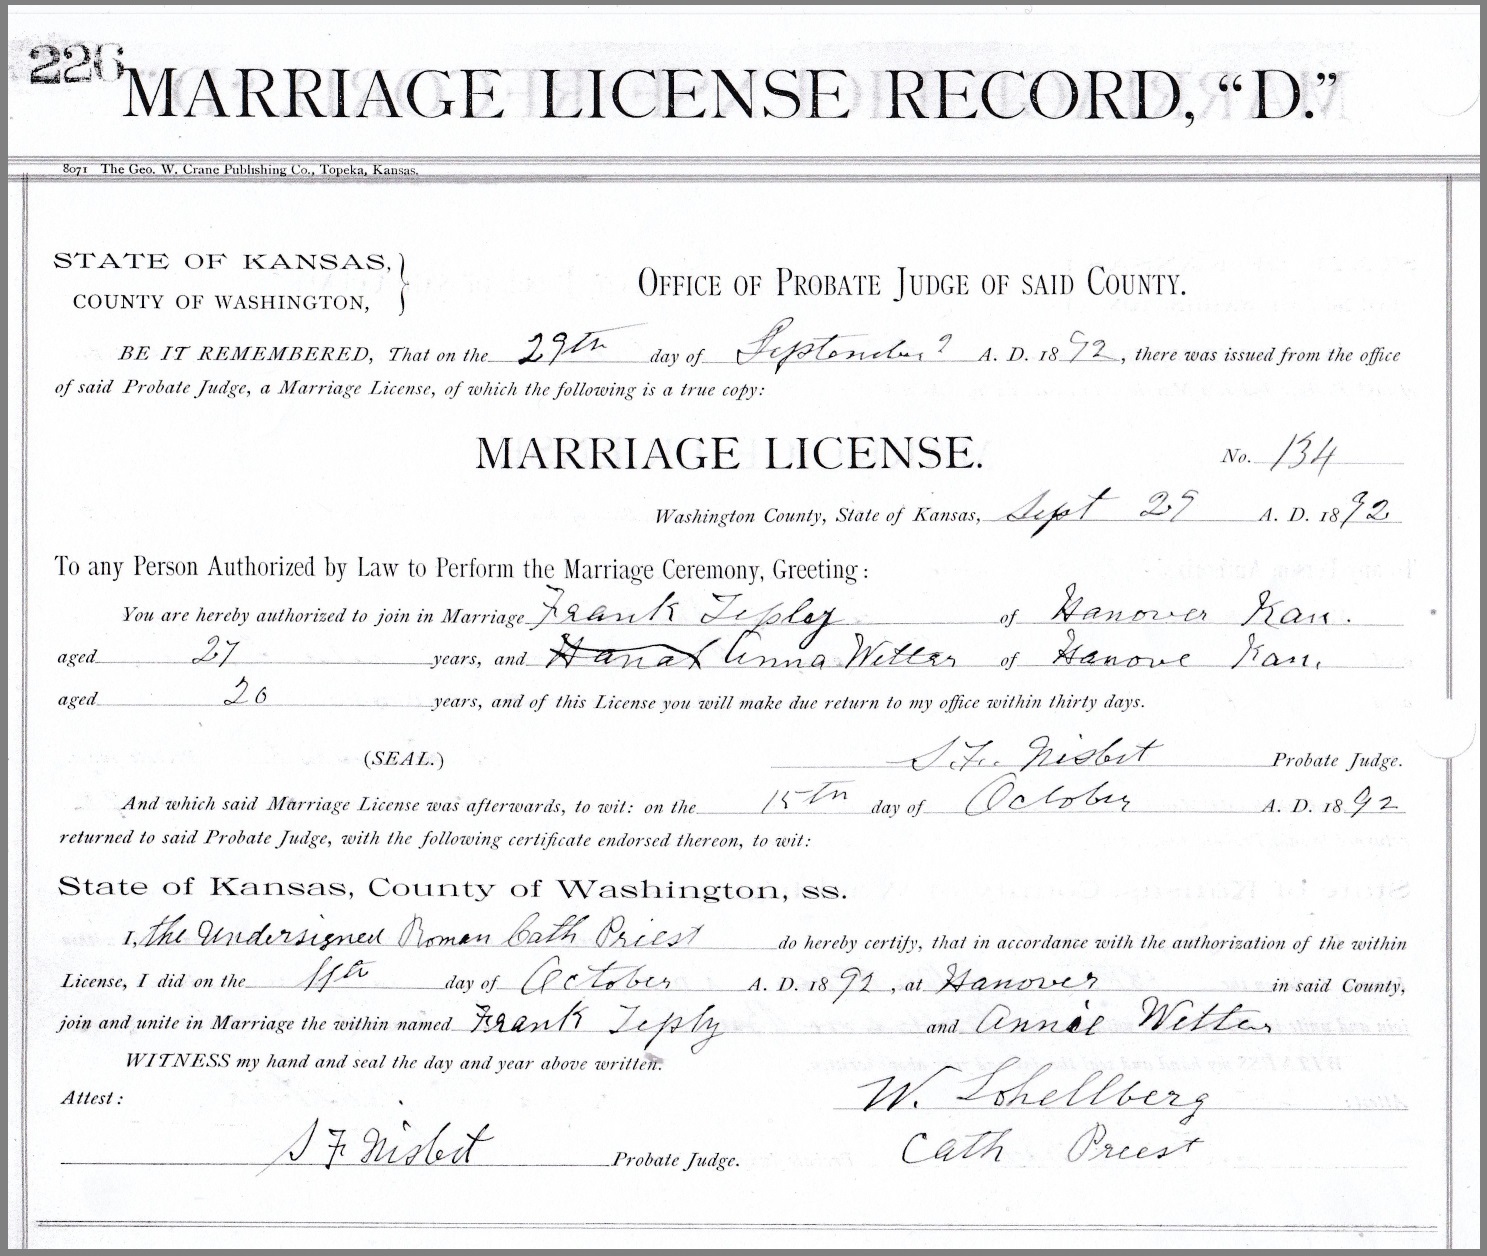 226
MARRIAGE LICENSE RECORD, "D."
8071 The Geo. W. Crane Publishing Co., Topeka, Kansas.
STATE OF KANSAS,
COUNTY OF WASHINGTON,
OFFICE OF PROBATE JUDGE OF SAID COUNTY.
BE IT REMEMBERED, That on the 29th day of September A. D. 1892, there was issued from the office
of said Probate Judge, a Marriage License, of which the following is a true copy:
MARRIAGE LICENSE.
No. 134
Washington County, State of Kansas, Sept 29 A. D. 1892
To any Person Authorized by Law to Perform the Marriage Ceremony, Greeting:
You are hereby authorized to join in Marriage Frank Teply of Hanover Kan.
aged 27 years, and Anna Wetter of Hanove Kan.
aged 20 years, and of this License you will make due return to my office within thirty days.
(SEAL.)
S. F. Nisbit Probate Judge.
And which said Marriage License was afterwards, to wit: on the 15th day of October A. D. 1892
returned to said Probate Judge, with the following certificate endorsed thereon, to wit:
State of Kansas, County of Washington, ss.
I, the Undersigned Roman Cath Priest do hereby certify, that in accordance with the authorization of the within
License, I did on the 11th day of October A. D. 1892, at Hanover in said County,
join and unite in Marriage the within named Frank Teply and Annie Wetter
WITNESS my hand and seal the day and year above written.
Attest:
W. Schellberg
S F Nisbit Probate Judge.
Cath Priest